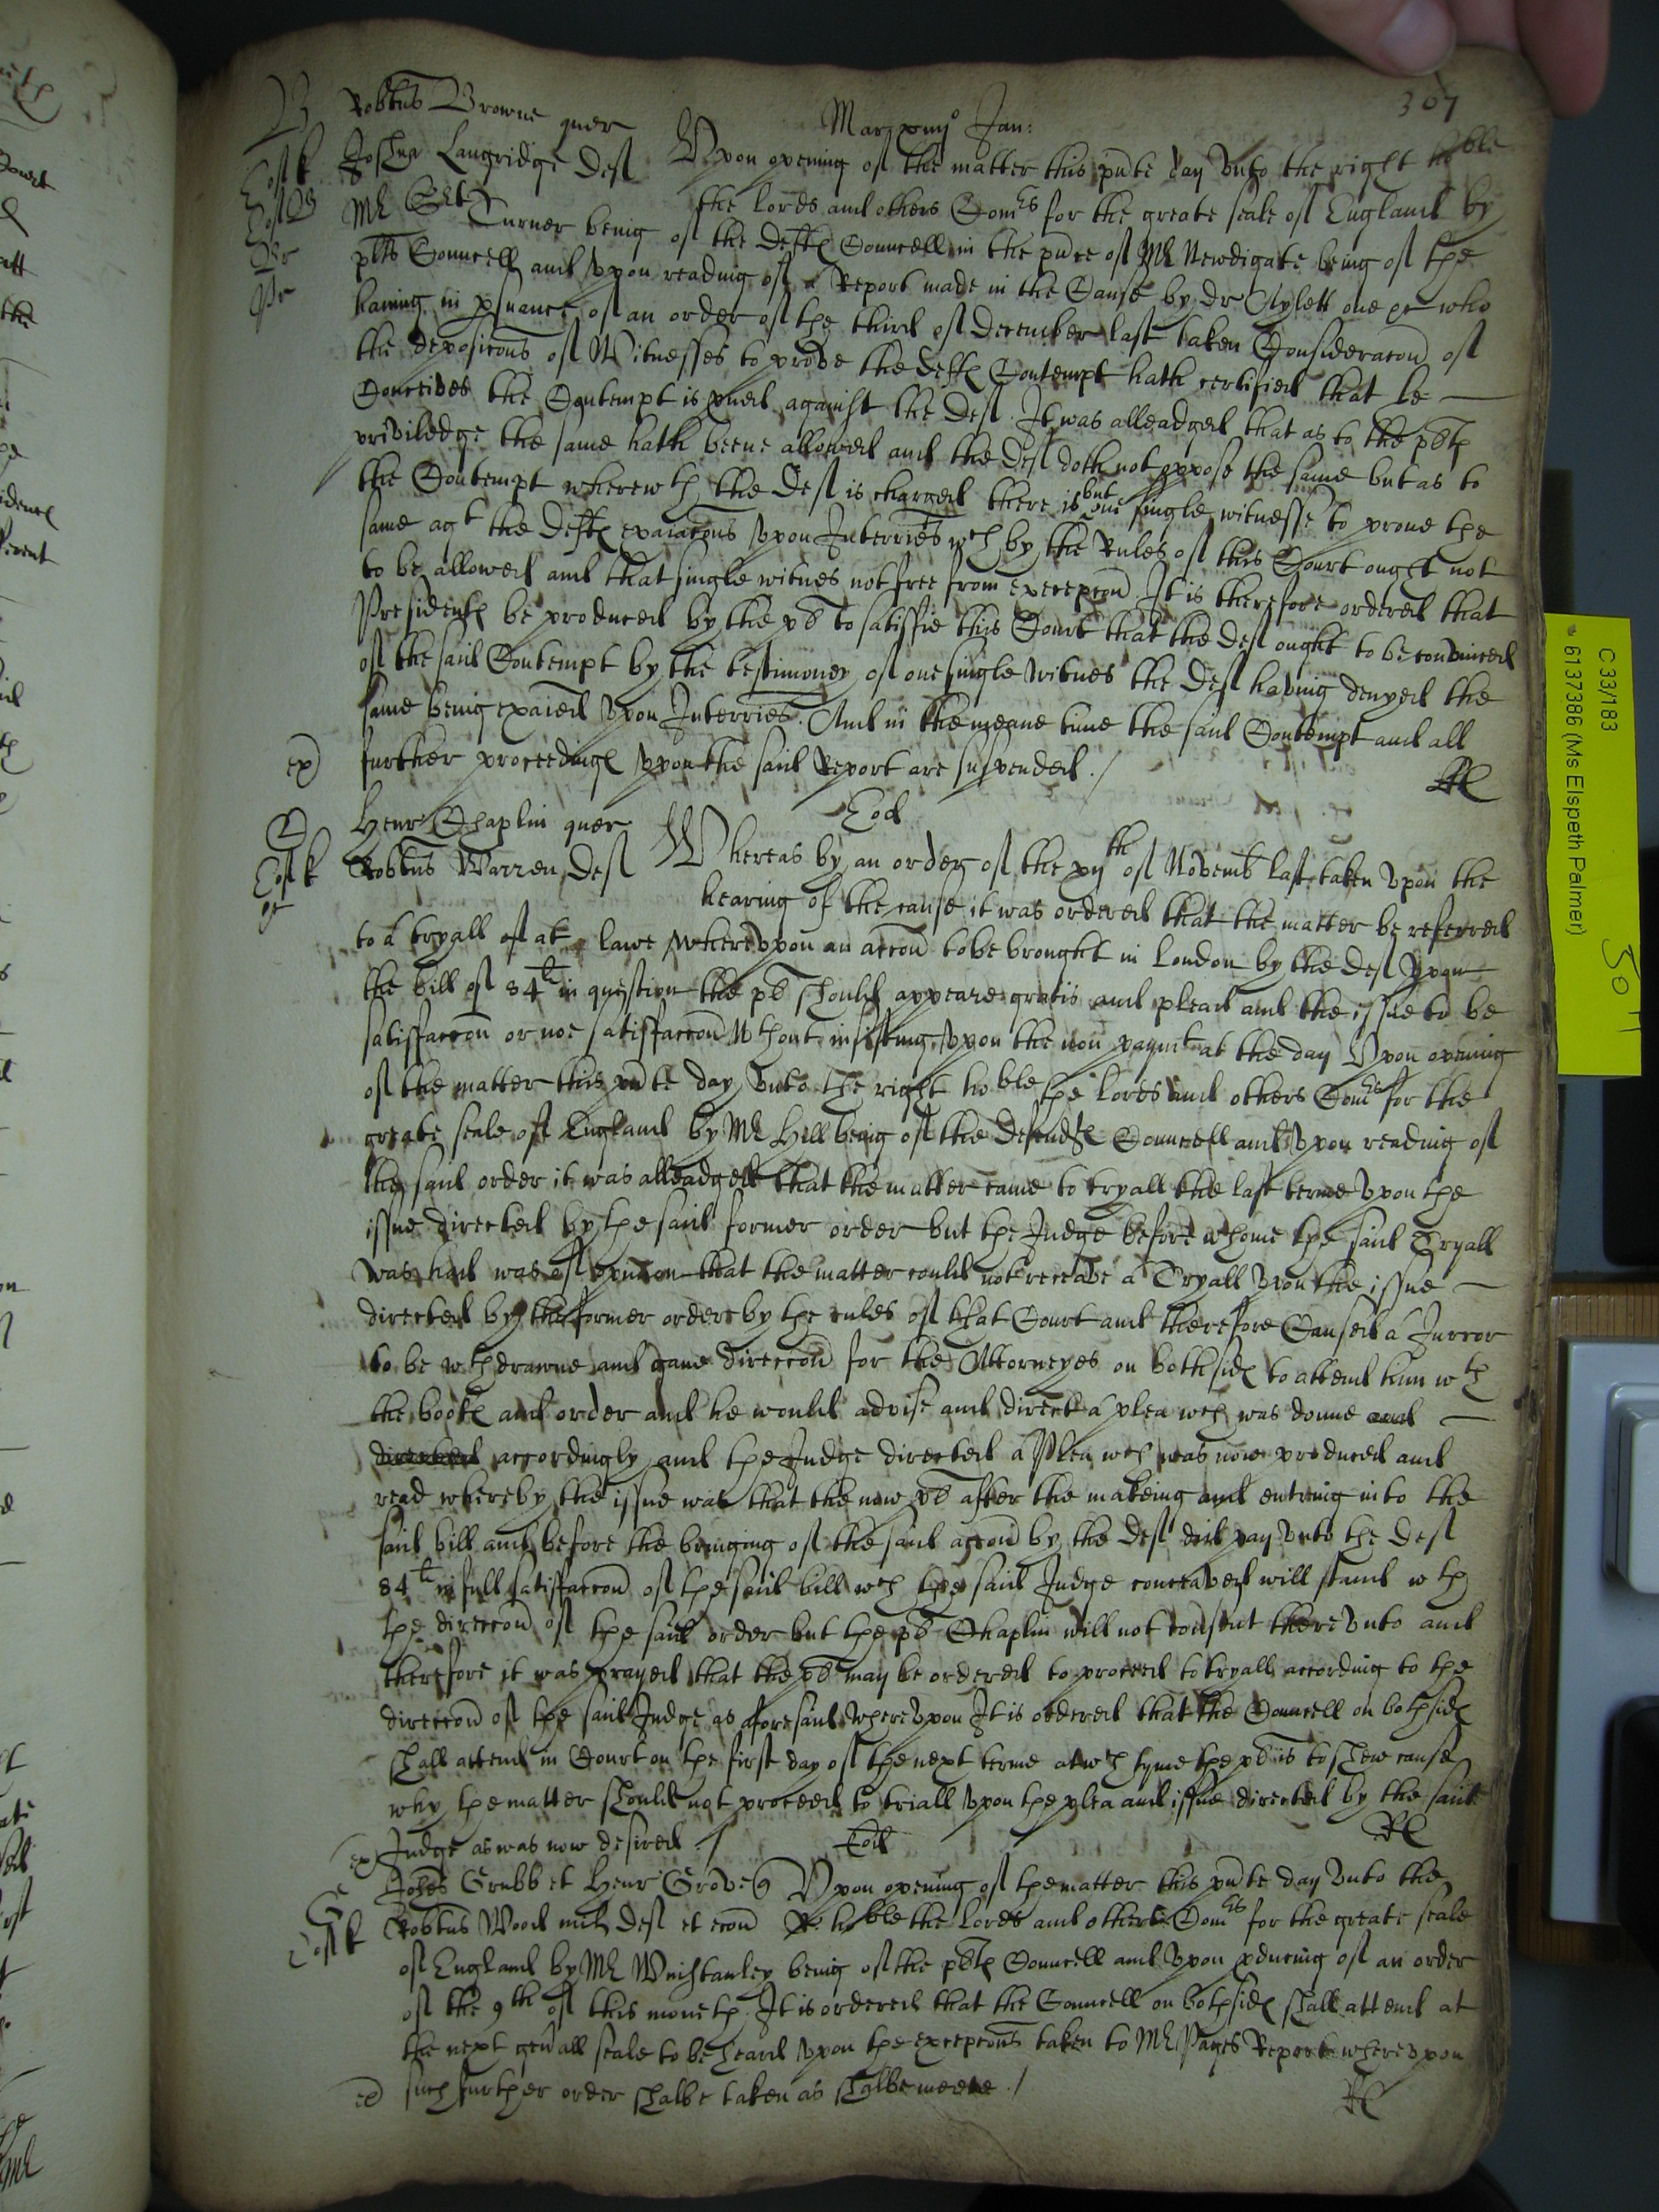 307
B Robtus Browne quer Mar xviijo Jan:
Cost k Joshua Langridge Deft Upon opening of the matter this pnte day unto the right hoble
the Lords and others Comrs for the greate seale of England by
Mr Turner being of the Defts Councell in the pnce of Mr Newdigate being of the
plts Councell and upon reading of a Report made in the Cause by Dr Aylett one &c who
haveing in psuance of an order of the third of December last taken Consideracon of
the deposicons of Witnesses to prove the defts Contempt hath certified that he
Conceives the Contempt is pued against the Deft. It was alleadged that as to the plts
priviledge the same hath beene allowed and the Deft doth not oppose the same but as to
the Contempt wherewth the Deft is charged there is but one single witnesse to prove the
same agt the Defts exaiacons upon Interries wch by the Rules of this Court ought not
to be allowed and that single witnes not free from excepcon. It is therefore ordered that
Presidents be produced by the plt to satisfie this Court that the Deft ought to be convinced
of the said Contempt by the testimoney of one single witnes the Deft having denyed the
same being exaied upon Interries. And in the meane time the said Contempt and all
ex further proceedings upon the said Report are suspended ./
C Henr Chaplin quer Eod
Cost k Robtus Warren Deft Whereas by an order of the xijth of Novemb last taken upon the
hearing of the cause it was ordered that the matter be referred
to a tryall of at lawe whereupon an accon to be brought in London by the Deft upon
the bill of 84li in question the plt should appeare gratis and plead and the issue to be
satisfaccon or noe satisfaccon wthout insisting upon the non paymt at the day Upon opening
of the matter this pnte day unto the right hoble the Lords and others Comrs for the
greate seale of England by Mr Hill being of the Defendts Councell and upon reading of
the said order it was alleadged that the matter came to tryall the last terme upon the
issue directed by the said former order but the Judge before whome the said Tryall
was had was of opinion that the matter could not receave a Tryall upon the issue
directed by the former order by the rules of that Court and therefore Caused a Juror
to be wthdrawne and gave direccon for the Attorneyes on both sides to attend him wth
the bookes and order and he would advise and direct a plea wch was donne and
directed accordingly and the Judge directed a Plea wch was now produced and
read whereby the issue was that the now plt after the makeing and entring into the
said bill and before the bringing of the said accon by the Deft did pay unto the Deft
84li in full satisfaccon of the said bill wch the said Judge conceaved will stand wth
the direccon of the said order but the plt Chaplin will not consent thereunto and
therefore it was prayed that the plt may be ordered to proceed to tryall according to the
direccon of the said Judge as aforesaid whereupon It is ordered that the Councell on both sides
shall attend in Court on the first day of the next terme at wch tyme the plt is to shew cause
why the matter should not proceed to triall upon the plea and issue directed by the said
ex Judge as was now desired ./ Eod
G Johes Grubb et Henr Grove Q Upon opening of the matter this pnte day unto the
Cost k Robtus Wood mil Deft et econ Rt hoble the Lords and others Comrs for the greate seale
of England by Mr Winstanley being of the plts Councell and upon pducing of an order
of the 9th of this moneth. It is ordered that the Councell on both sides shall attend at
the next genall seale to be heard upon the excepcons taken to Mr Pages Report whereupon
ex such further order shalbe taken as shalbe meete ./
C 33/183
6137386 (Ms Elspeth Palmer)